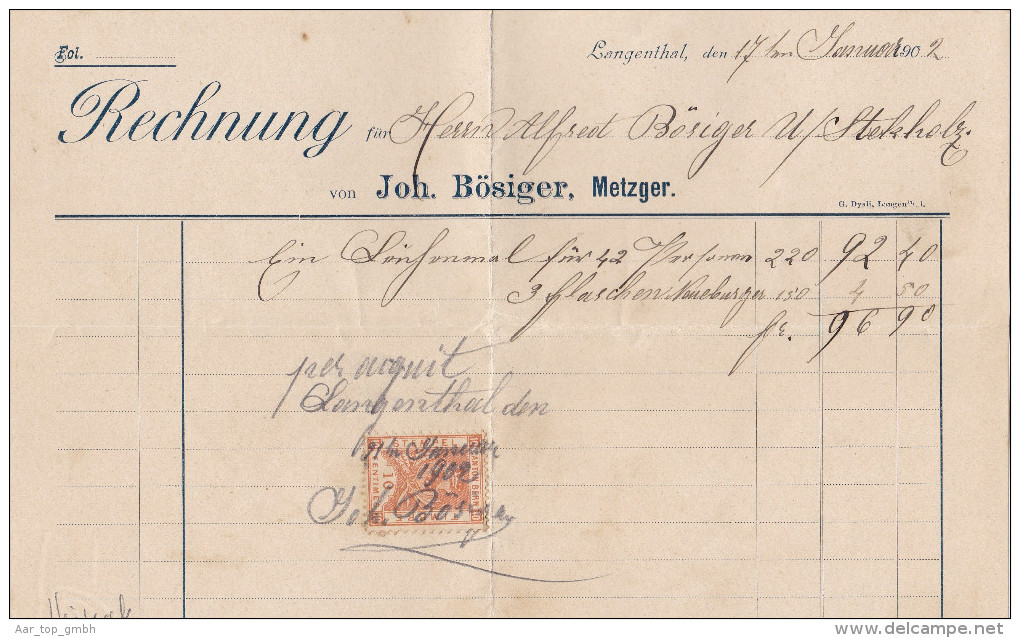 Fol.
Langenthal, den 17ten Januar 1902
Rechnung für Herrn Alfred Bösiger U/Stekholz.
von Joh. Bösiger, Metzger.
G. Dysli, Langenthal.
Ein Leichenmal für 42 Personen 220 92 40
3 Flaschen Neueburger 150 4 50
fr. 96 90
per acquit
Langenthal den
Januar
1902
Joh. Bösiger
STEMPEL
KANTON BERN
CENTIMES
10
Aar_top_gmbh
delcampe.net